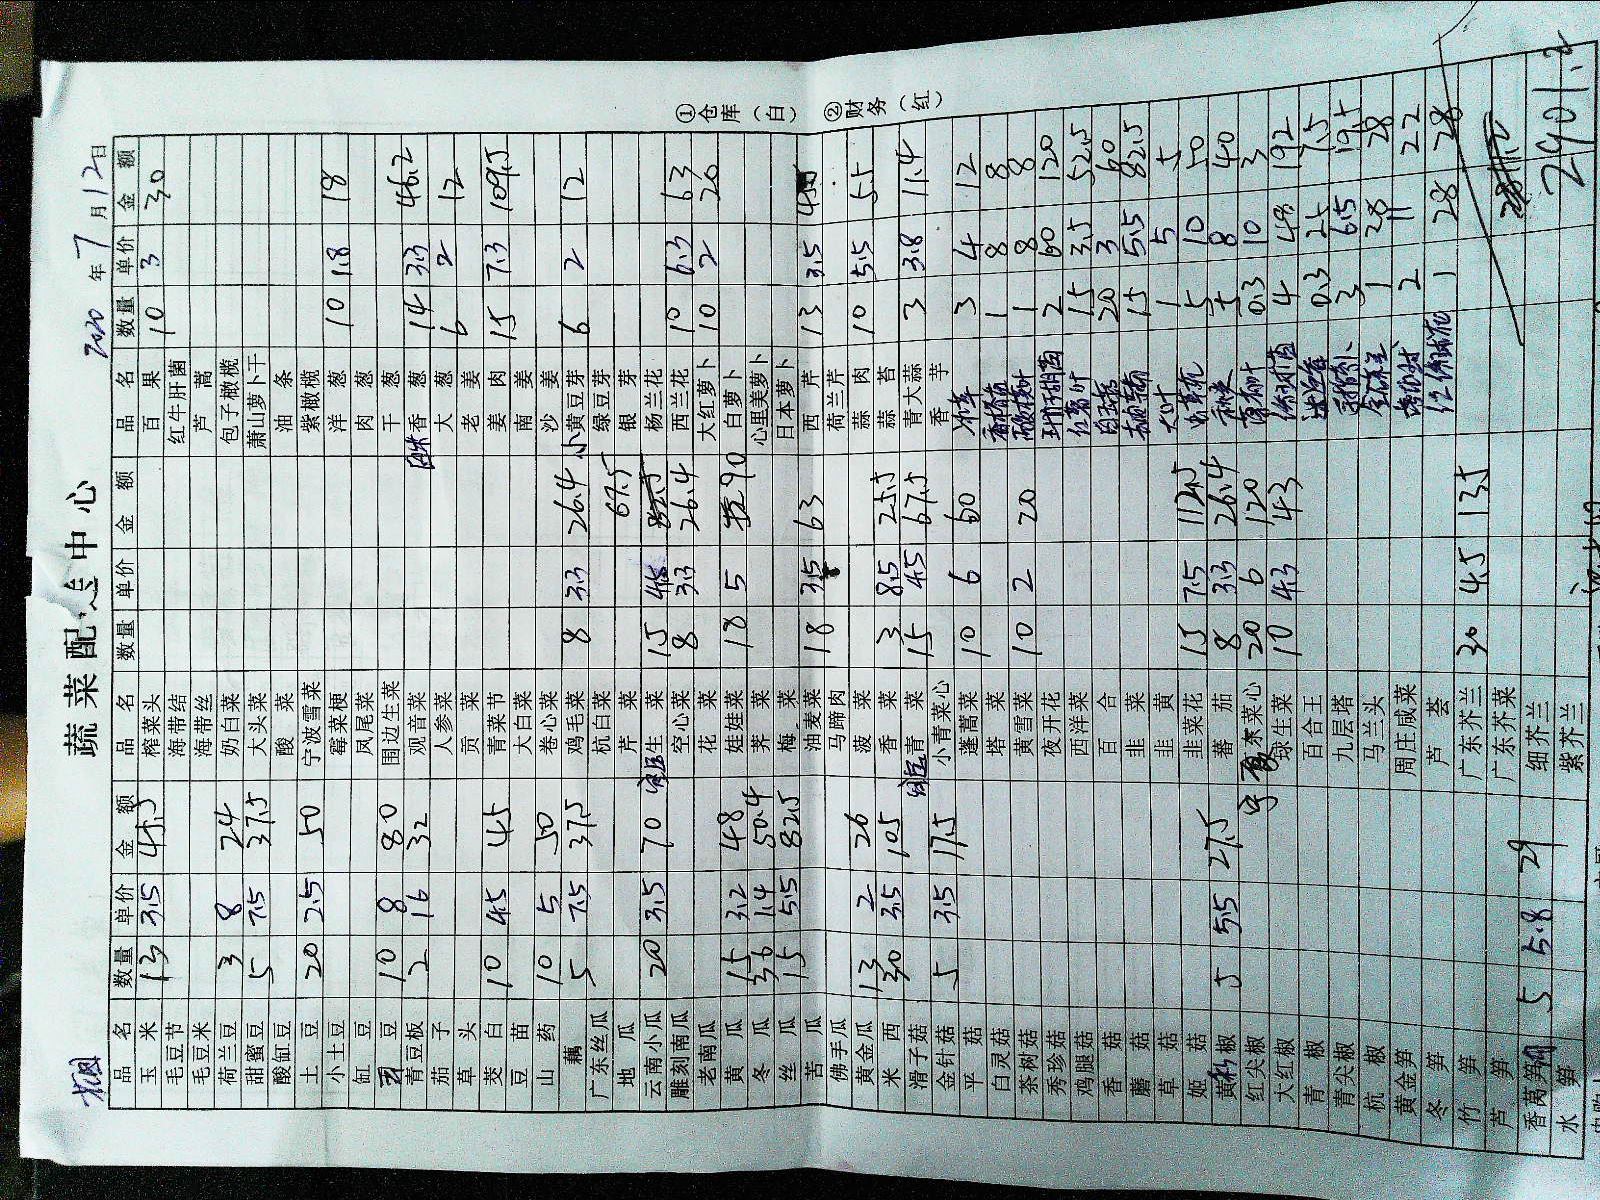 蔬菜配送中心
2020年7月12日
品名 数量 单价 金额 品名 数量 单价 金额 品名 数量 单价 金额
玉米 13 3.5 45.5 榨菜头 百果 10 3 30
毛豆节 海带结 红牛肝菌
毛豆米 海带丝 芦蒿
荷兰豆 3 8 24 奶白菜 包子橄榄
甜蜜豆 5 7.5 37.5 大头菜 萧山萝卜干
酸缸豆 酸菜 油条
土豆 20 2.5 50 宁波雪菜 紫橄榄
小土豆 霉菜梗 洋葱 10 1.8 18
缸豆 凤尾菜 肉葱
豆 10 8 80 围边生菜 干葱
青豆板 2 16 32 观音菜 香葱 14 3.3 46.2
茄子 人参菜 大葱 6 2 12
草头 贡菜 老姜
茭白 10 4.5 45 青菜节 姜肉 15 7.3 109.5
豆苗 大白菜 南姜
山药 10 5 50 卷心菜 沙姜
藕 5 7.5 37.5 鸡毛菜 8 3.3 26.4 小黄豆芽 6 2 12
广东丝瓜 杭白菜 绿豆芽
地瓜 芹菜 67.5 银芽
云南小瓜 20 3.5 70 生菜 15 4.5 杨兰花
雕刻南瓜 空心菜 8 3.3 26.4 西兰花 10 6.3 63
老南瓜 花菜 大红萝卜 10 2 20
黄瓜 15 3.2 48 娃娃菜 18 5 90 白萝卜
冬瓜 36 1.4 50.4 荠菜 心里美萝卜
丝瓜 15 5.5 82.5 梅菜 日本萝卜
苦瓜 油麦菜 18 3.5 63 西芹 13 3.5
佛手瓜 马蹄肉 荷兰芹
黄金瓜 13 2 26 菠菜 蒜肉 10 5.5 55
米西 30 3.5 105 香菜 3 8.5 25.5 蒜苔
滑子菇 青菜 15 4.5 67.5 青大蒜 3 3.8 11.4
金针菇 5 3.5 17.5 小青菜心 香芋
平菇 蓬蒿菜 10 6 60 3 4 12
白灵菇 塔菜 1 8 8
茶树菇 黄雪菜 10 2 20 1 8 8
秀珍菇 夜开花 2 60 120
鸡腿菇 西洋菜 15 3.5 52.5
香菇 百合 20 3 60
蘑菇 韭菜 15 5.5 82.5
草菇 韭黄 1 5 5
姬菇 韭菜花 15 7.5 112.5 5 10 50
黄椒 5 5.5 27.5 蕃茄 8 3.3 26.4 5 8 40
红尖椒 菜心 20 6 120 0.3 10 3
大红椒 球生菜 10 4.3 43 4 48 192
青椒 百合王 0.3 25 7.5
青尖椒 九层塔 3 6.5 19.5
杭椒 马兰头 1 28 28
黄金笋 周庄咸菜 2 11 22
冬笋 芦荟 1 28 28
竹笋 广东芥兰 30 4.5 135
芦笋 广东芥菜
香莴笋 5 5.8 29 细芥兰 2901.2
水笋 紫芥兰
①仓库（白） ②财务（红）